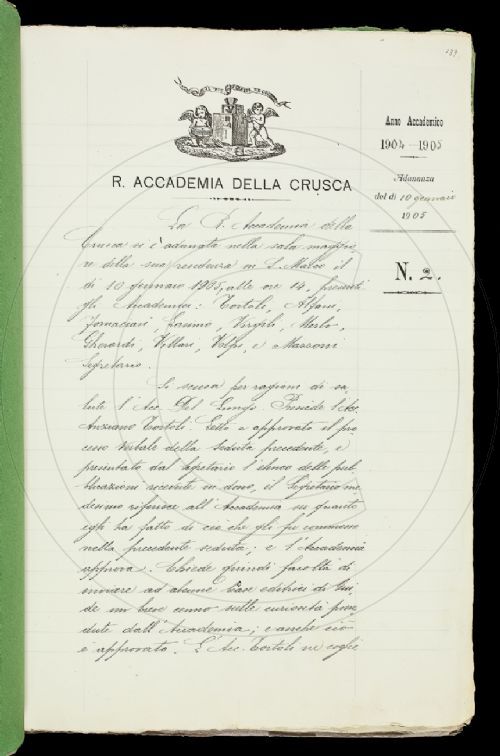 139
Anno Accademico
1904-1905
Adunanza
del dì 10 gennaio
1905
N. 2.
R. ACCADEMIA DELLA CRUSCA
La R. Accademia della
Crusca si è adunata nella sala maggio
re della sua residenza in S. Marco il
dì 10 gennaio 1905, alle ore 14, presenti
gli Accademici: Tortoli, Alfani,
Fornaciari, Virgili, Merlo,
Gherardi, Villari, Volpi, e Mazzoni
Segretario.
Si scusa per ragioni di sa-
lute l'Acc. Del Lungo. Presiede l'Acc.
Anziano Tortoli. Letto e approvato il pro
cesso verbale della seduta precedente, e
presentato dal Segretario l'elenco delle pub
blicazioni ricevute in dono, il Segretario me
desimo riferisce all'Accademia su quanto
egli ha fatto di ciò che gli fu commesso
nella precedente seduta; e l'Accademia
approva. Chiede quindi facoltà di
inviare ad alcune Case editrici di Gui
de un breve cenno sulle curiosità posse
dute dall'Accademia; e anche ciò
è approvato. L'Acc. Tortoli ne coglie